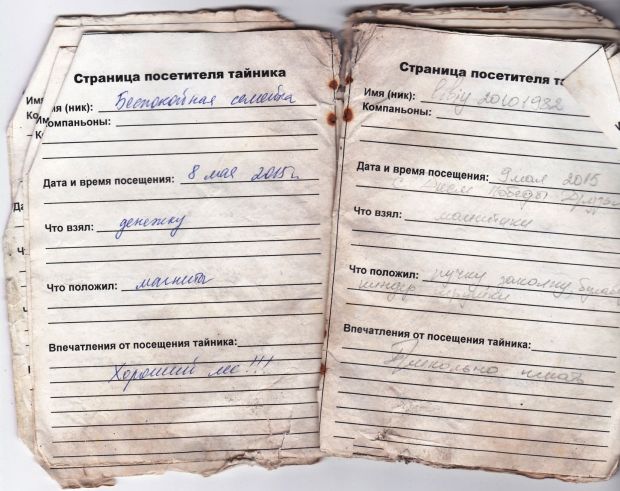 Страница посетителя тайника
Имя (ник): Беспокойная семейка
Компаньоны:
Дата и время посещения: 8 мая 2015г
Что взял: денежку
Что положил: магниты
Впечатления от посещения тайника:
Хороший лес!!!
Страница посетителя та
Имя (ник): 20101982
Компаньоны:
Дата и время посещения: 9 мая 2015
С Днем Победы Друзья
Что взял: магнитики
Что положил: ручку, заколку, булав
киндер игрушки
Впечатления от посещения тайника:
Прикольно искать